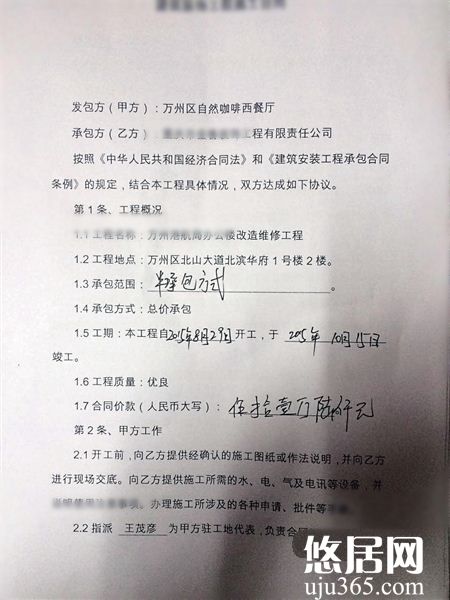 发包方（甲方）：万州区自然咖啡西餐厅
承包方（乙方）：程有限责任公司
按照《中华人民共和国经济合同法》和《建筑安装工程承包合同
条例》的规定，结合本工程具体情况，双方达成如下协议。
第1条、工程概况
1.1 工程名称：万州港航局办公楼改造维修工程
1.2 工程地点：万州区北山大道北滨华府1号楼2楼。
1.3 承包范围：半承包方式。
1.4 承包方式：总价承包
1.5 工期：本工程自2015年8月29日开工，于 2015年10月15日
竣工。
1.6 工程质量：优良
1.7 合同价款（人民币大写）：伍拾壹万陆仟元
第2条、甲方工作
2.1 开工前，向乙方提供经确认的施工图纸或作法说明，并向乙方
进行现场交底。向乙方提供施工所需的水、电、气及电讯等设备，并
办理施工所涉及的各种申请、批件等
2.2 指派 王茂彦 为甲方驻工地代表，负责合同
悠居网
uju365.com